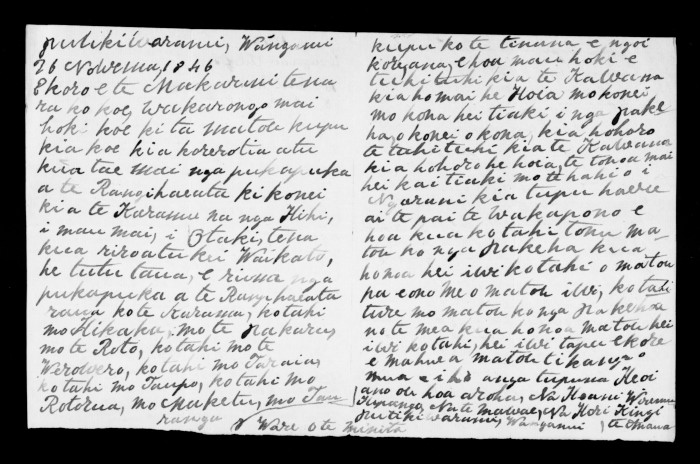 Putiki Warami, Wangami
26 Nowema, 1846
E koro e te Makarini tena
ra ko koe, Wakarongo mai
hoki koe ki ta matou kupu
kia koe kia korerotia atu
kua tae mai nga pukapuka
a te Rangihaeata ki konei
ki a te Karamu na nga Hihi,
i mau mai, i Otaki, tena
kua riro atu kei Waikato,
he tutu tana, e riwa nga
pukapuka a te Rangihaeata
raua ko te Karamu, kotahi
mo Hikaka, mo te Pakaru,
mo te Roto, kotahi mo te
Werowero, kotahi mo Taraia,
kotahi mo Taupo, kotahi mo
Rotorua, mo Maketu, mo Tau
ranga
kupu ko te tinana e ngoi
kore ana, e hoa mau hoki e
tuhituhi kia te Kawana
kia homai he Hoia mo konei
mo kona hei tiaki i nga pake
ha, o konei o kona, kia hohoro
te tuhituhi kia te Kawana
kia hohoro he hoia, te tonoa mai
hei kai tiaki mo te hahi o i
Ngarani kia tupu haere
ai te pai te wakapono e
hoa kua kotahi tonu ma
tou ko nga pakeha kua
honoa hei iwi kotahi o matou
pa eono me o matou iwi, kotahi
ture mo matou ko nga pakeha
no te mea kua honoa matou hei
iwi kotahi, hei iwi tapu ekore
e mahue a matou tikanga
mua e iho anga tupuna Heoi
ano ou hoa aroha, Na Hoani Wiremu
Hipango, Na te Mawae, Na Hori Kingi
Putiki Warami, Wanganui, te Anaua
Ware o te minita